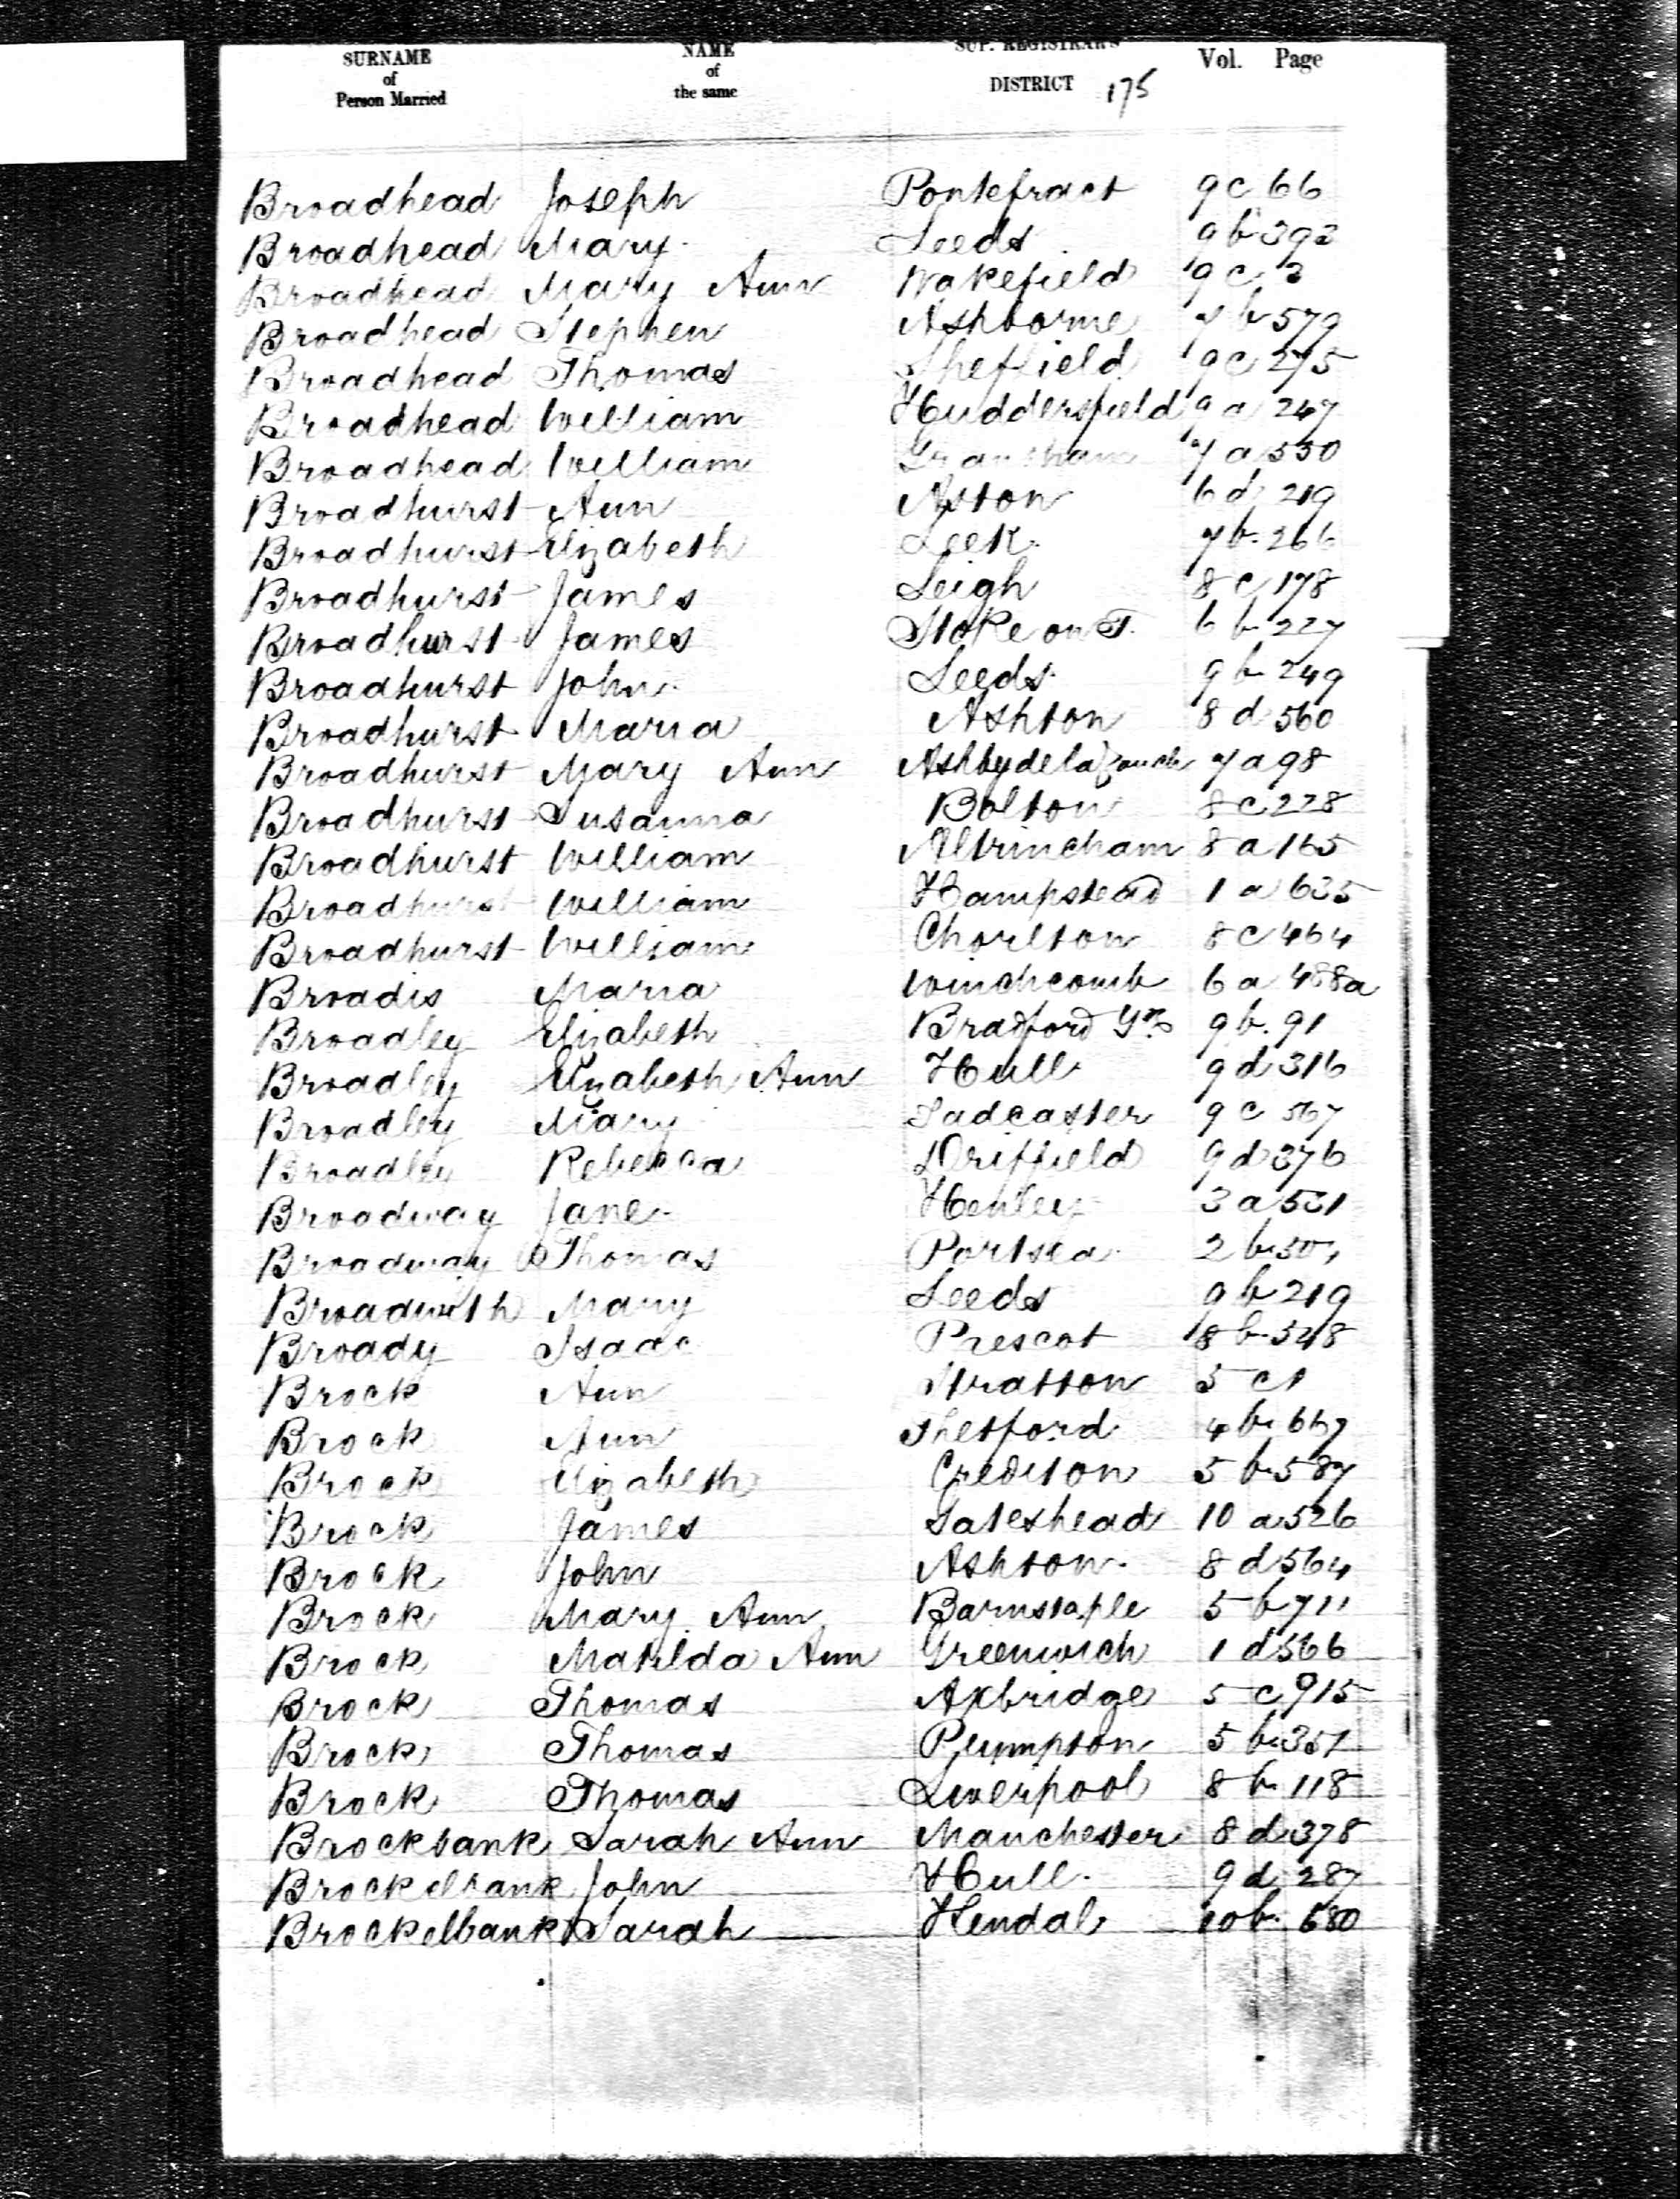 SURNAME of Person Married NAME of the same SUP. REGISTRAR'S DISTRICT Vol. Page
175
Broadhead Joseph Pontefract 9c 66
Broadhead Mary Leeds 9b 393
Broadhead Mary Ann Wakefield 9c 3
Broadhead Stephen Ashborne 7b 579
Broadhead Thomas Sheffield 9c 275
Broadhead William Huddersfield 9a 247
Broadhead William Grantham 7a 550
Broadhurst Ann Aston 6d 219
Broadhurst Elizabeth Leek 7b 266
Broadhurst James Leigh 8c 178
Broadhurst James Stoke on T. 6b 227
Broadhurst John Leeds 9b 249
Broadhurst Maria Ashton 8d 560
Broadhurst Mary Ann Ashby de la Zouch 7a 98
Broadhurst Susanna Bolton 8c 228
Broadhurst William Altrincham 8a 165
Broadhurst William Hampstead 1a 635
Broadhurst William Chorlton 8c 464
Broadis Maria Winchcomb 6a 488a
Broadley Elizabeth Bradford Y. 9b 91
Broadley Elizabeth Ann Hull 9d 316
Broadley Mary Tadcaster 9c 567
Broadley Rebecca Driffield 9d 376
Broadway Jane Henley 3a
Broadway Thomas Portsea 2b
Broadwith Mary Leeds 9b 219
Broady Isaac Prescot 8b 528
Brock Ann Stratton 5c 1
Brock Ann Thetford 4b 667
Brock Elizabeth Crediton 5b 587
Brock James Gateshead 10a 526
Brock John Ashton 8d 564
Brock Mary Ann Barnstaple 5b 711
Brock Matilda Ann Greenwich 1d 566
Brock Thomas Axbridge 5c 915
Brock Thomas Plympton 5b 351
Brock Thomas Liverpool 8b 118
Brockbank Sarah Ann Manchester 8d 378
Brockelbank John Hull 9d 287
Brockelbank Sarah Kendal 10b 680